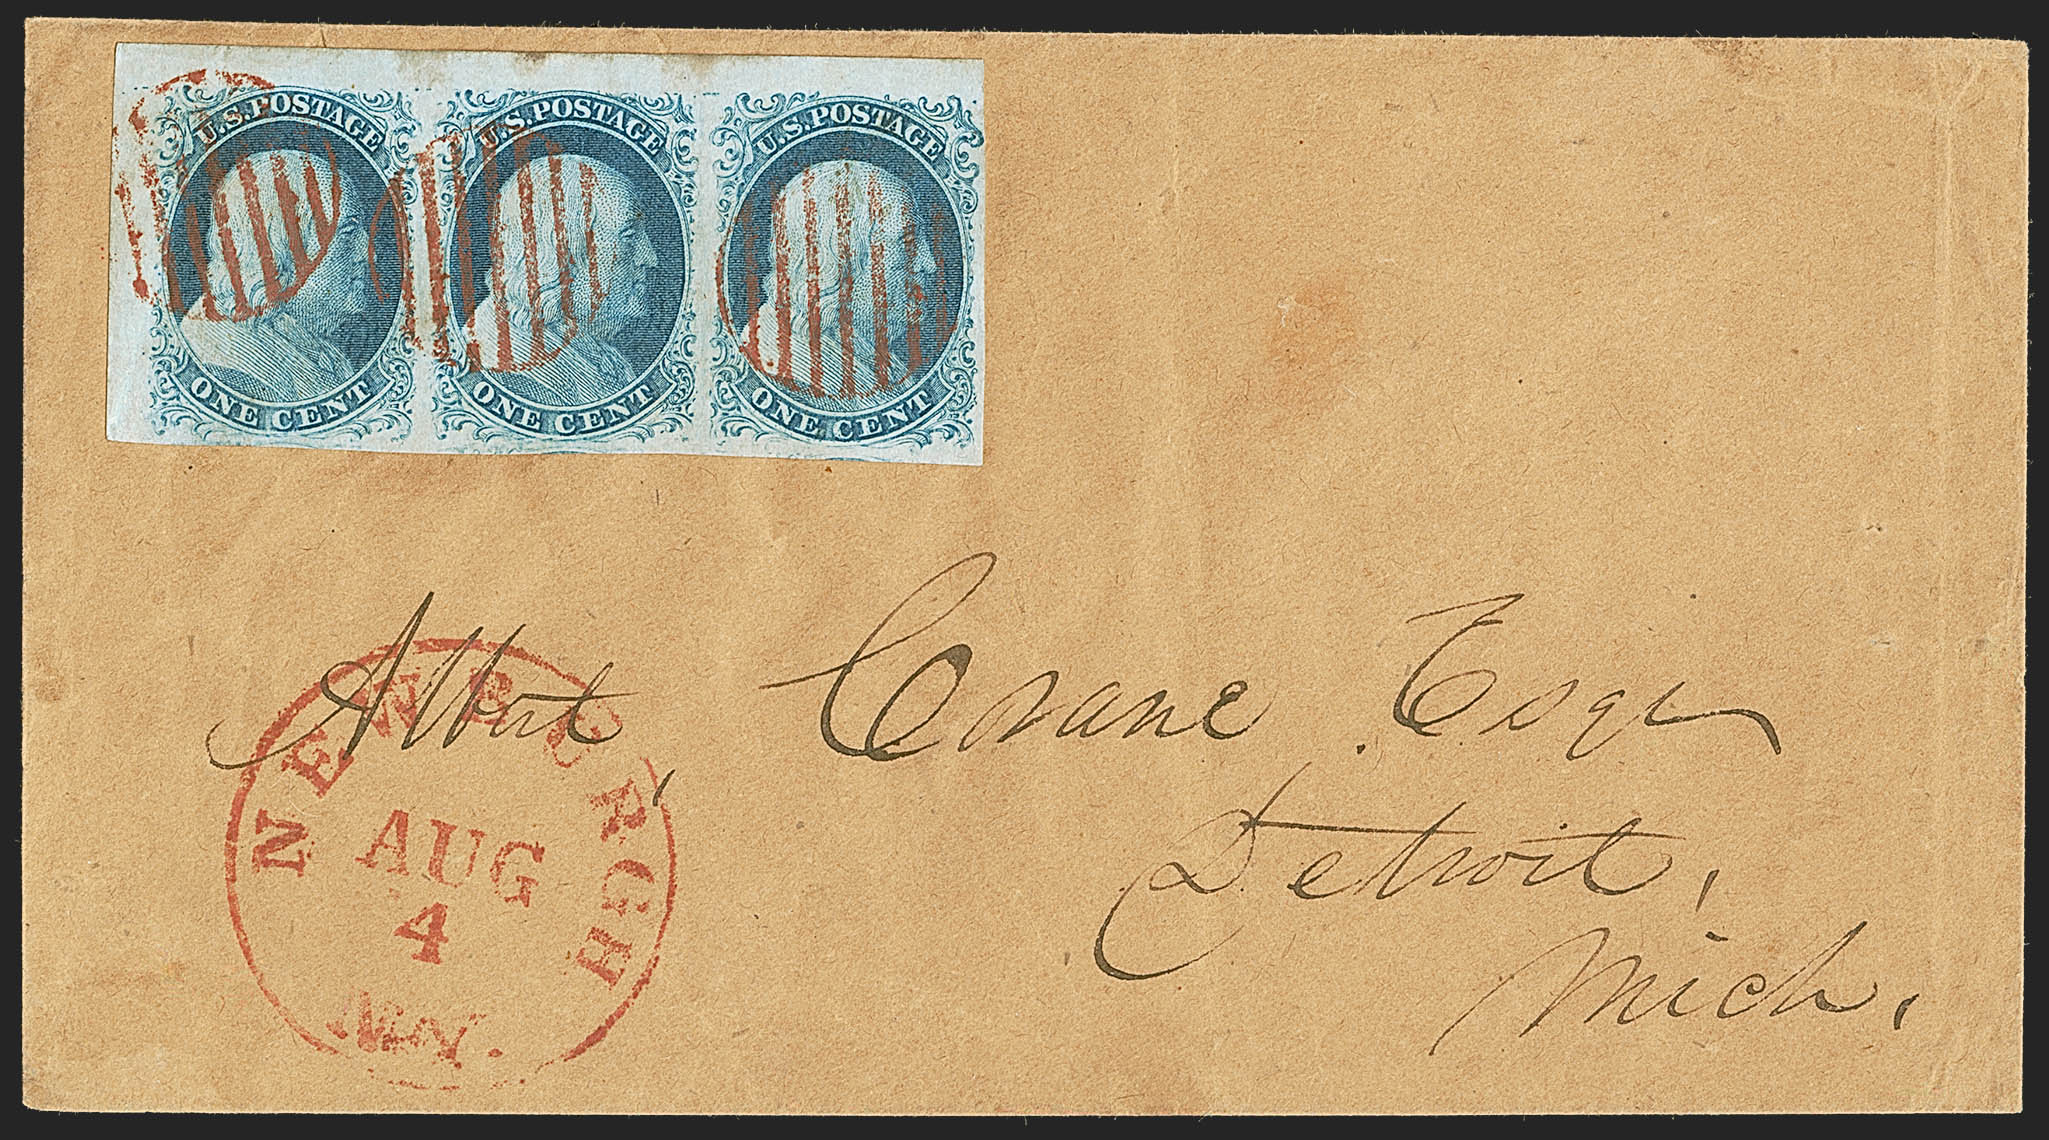 U.S. POSTAGE
ONE CENT
U.S. POSTAGE
ONE CENT
U.S. POSTAGE
ONE CENT
Albert Crane Esqr
Detroit,
Mich.
NEWBURGH
AUG
4
N.Y.